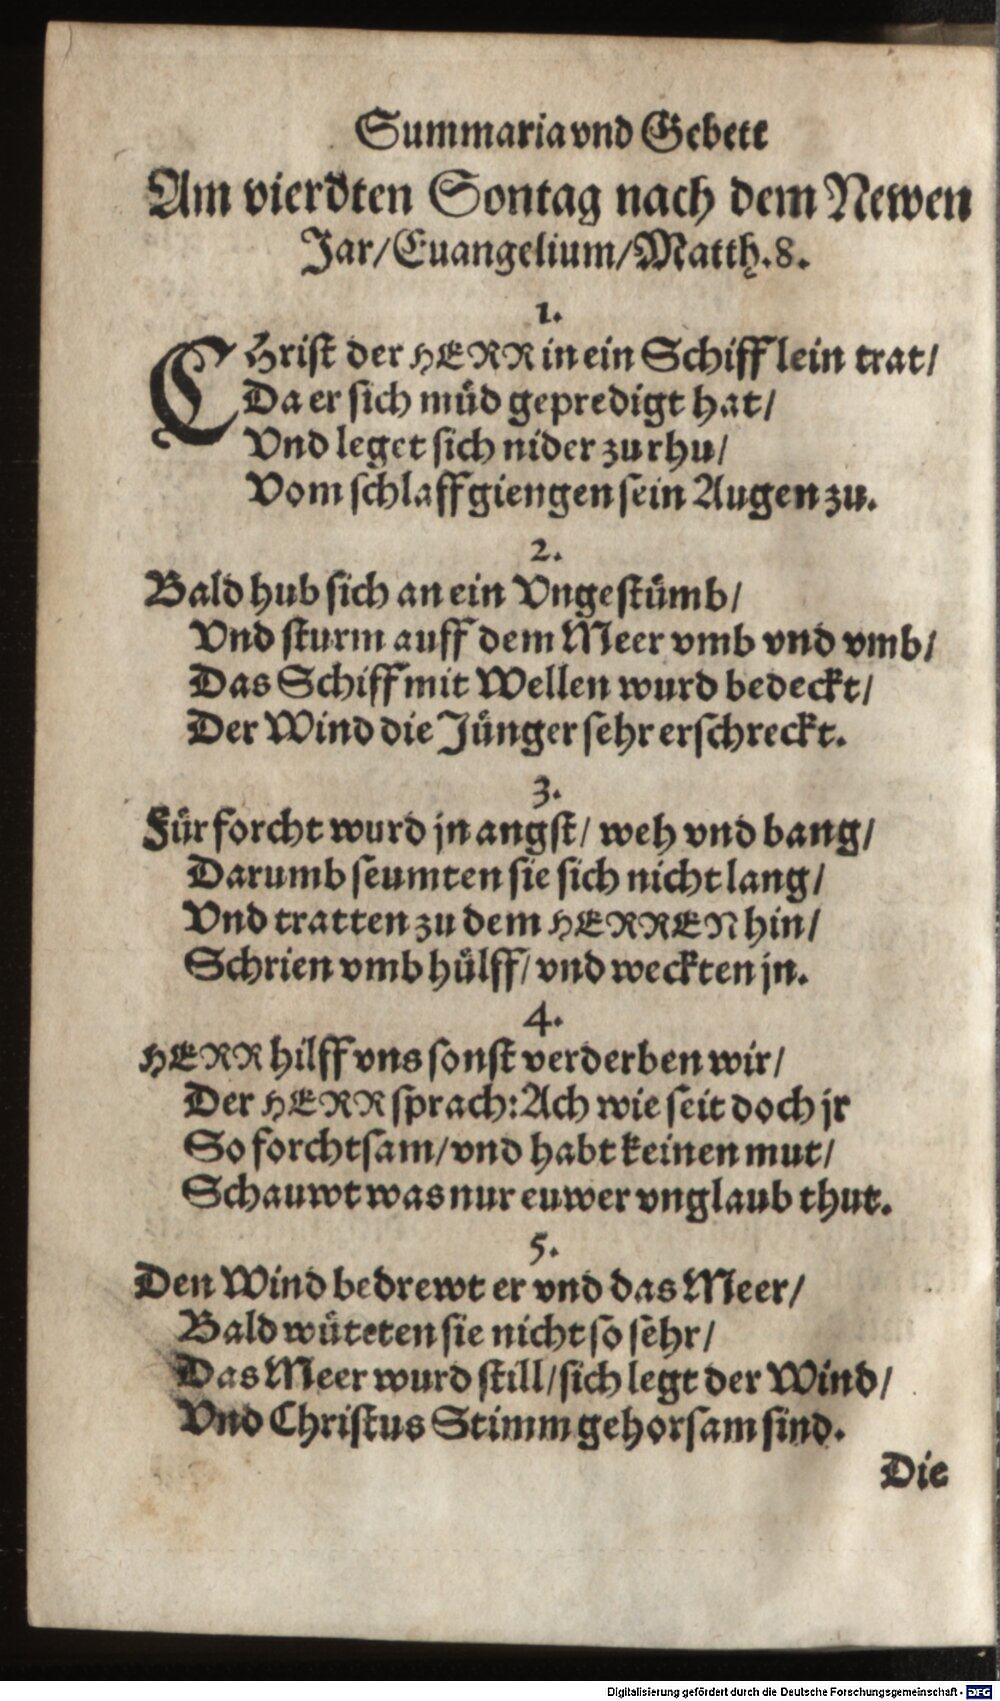 Summaria vnd Gebete
Am vierdten Sontag nach dem Newen
Jar/Euangelium/Matth.8.
1.
CHrist der HERR in ein Schifflein trat/
Da er sich müd gepredigt hat/
Vnd leget sich nider zu rhu/
Vom schlaff giengen sein Augen zu.
2.
Bald hub sich an ein Vngestümb/
Vnd sturm auff dem Meer vmb vnd vmb/
Das Schiff mit Wellen wurd bedeckt/
Der Wind die Jünger sehr erschreckt.
3.
Für forcht wurd jn angst/ weh vnd bang/
Darumb seumten sie sich nicht lang/
Vnd tratten zu dem HERREN hin/
Schrien vmb hülff/ vnd weckten jn.
4.
HERR hilff vns sonst verderben wir/
Der HERR sprach: Ach wie seit doch jr
So forchtsam/ vnd habt keinen mut/
Schauwt was nur euwer vnglaub thut.
5.
Den Wind bedrewt er vnd das Meer/
Bald wüteten sie nicht so sehr/
Das Meer wurd still/ sich legt der Wind/
Vnd Christus Stimm gehorsam sind.
Die
Digitalisierung gefördert durch die Deutsche Forschungsgemeinschaft - DFG